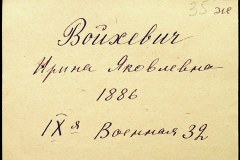 35 же
Войхевич
Ирина Яковлевна
1886
IXя Военная 32